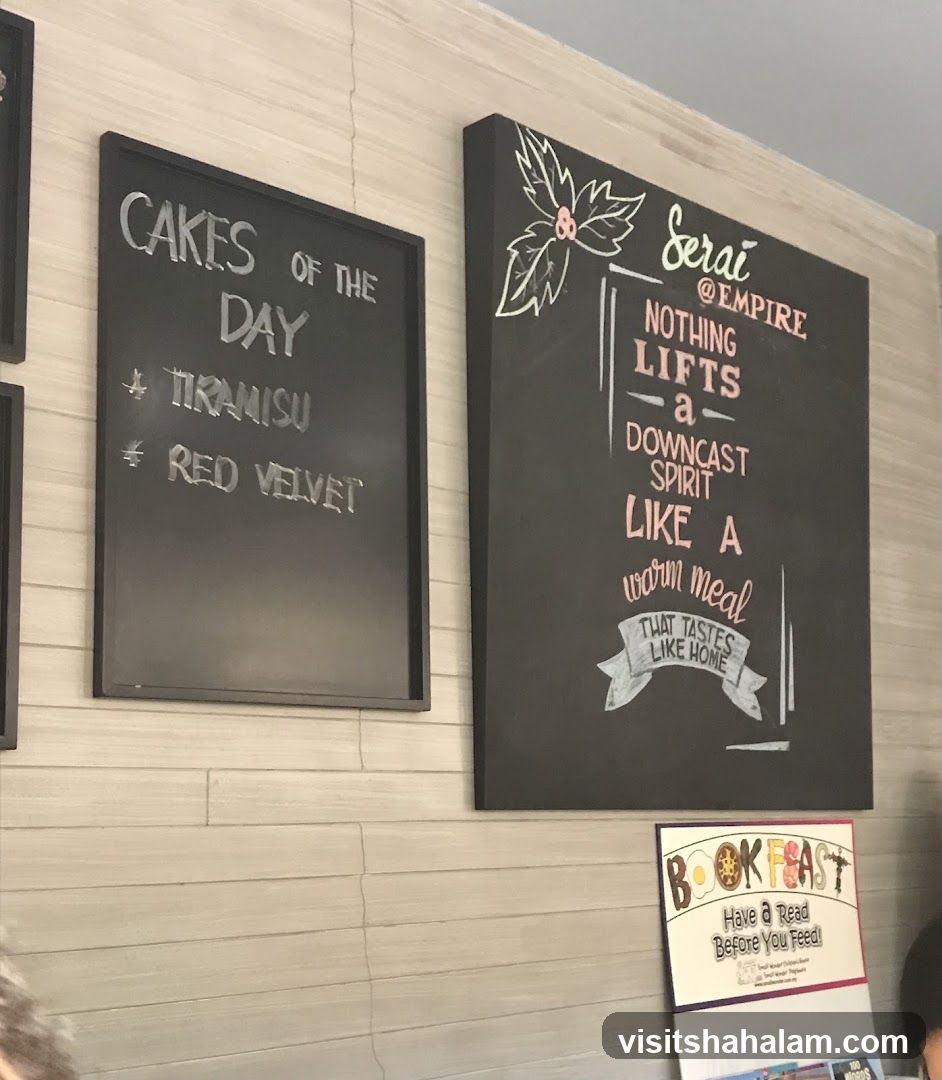 CAKES OF THE
DAY
* TIRAMISU
* RED VELVET
Serai
@EMPIRE
NOTHING
LIFTS
a
DOWNCAST
SPIRIT
LIKE A
warm meal
THAT TASTES
LIKE HOME
BOOK FEAST
Have a Read
Before You Feed!
100
WORDS
visitshahalam.com